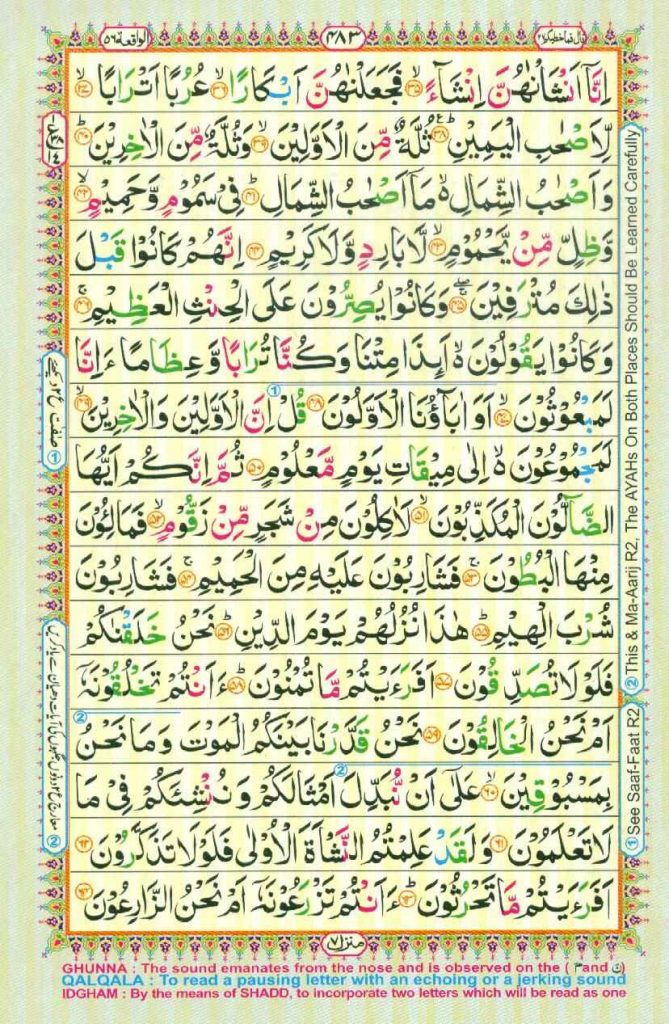 قال فما خطبکم ۲۷
۴۸۳
الواقعة ۵۶
اِنَّاۤ اَنْشَاْنٰهُنَّ اِنْشَآءً ۙ۳۵ فَجَعَلْنٰهُنَّ اَبْكَارًا ۙ۳۶ عُرُبًا اَتْرَابًا ۙ۳۷
لِّاَصْحٰبِ الْيَمِيْنِ ؕ۳۸ ثُلَّةٌ مِّنَ الْاَوَّلِيْنَ ۙ۳۹ وَثُلَّةٌ مِّنَ الْاٰخِرِيْنَ ؕ۴۰
وَاَصْحٰبُ الشِّمَالِ ۙ مَاۤ اَصْحٰبُ الشِّمَالِ ؕ۴۱ فِيْ سَمُوْمٍ وَّحَمِيْمٍ ۙ۴۲
وَّظِلٍّ مِّنْ يَّحْمُوْمٍ ۙ۴۳ لَّا بَارِدٍ وَّلَا كَرِيْمٍ ۴۴ اِنَّهُمْ كَانُوْا قَبْلَ
ذٰلِكَ مُتْرَفِيْنَ ۚۖ۴۵ وَكَانُوْا يُصِرُّوْنَ عَلَى الْحِنْثِ الْعَظِيْمِ ۚ۴۶
وَكَانُوْا يَقُوْلُوْنَ ۙ اَىِٕذَا مِتْنَا وَكُنَّا تُرَابًا وَّعِظَامًا ءَاِنَّا
لَمَبْعُوْثُوْنَ ۙ۴۷ اَوَ اٰبَآؤُنَا الْاَوَّلُوْنَ ۴۸ قُلْ اِنَّ الْاَوَّلِيْنَ وَالْاٰخِرِيْنَ ۙ۴۹
لَمَجْمُوْعُوْنَ ۙ اِلٰى مِيْقَاتِ يَوْمٍ مَّعْلُوْمٍ ۵۰ ثُمَّ اِنَّكُمْ اَيُّهَا
الضَّآلُّوْنَ الْمُكَذِّبُوْنَ ۙ۵۱ لَاٰكِلُوْنَ مِنْ شَجَرٍ مِّنْ زَقُّوْمٍ ۙ۵۲ فَمَالِـُٔوْنَ
مِنْهَا الْبُطُوْنَ ۚ۵۳ فَشَارِبُوْنَ عَلَيْهِ مِنَ الْحَمِيْمِ ۚ۵۴ فَشَارِبُوْنَ
شُرْبَ الْهِيْمِ ؕ۵۵ هٰذَا نُزُلُهُمْ يَوْمَ الدِّيْنِ ؕ۵۶ نَحْنُ خَلَقْنٰكُمْ
فَلَوْلَا تُصَدِّقُوْنَ ۵۷ اَفَرَءَيْتُمْ مَّا تُمْنُوْنَ ؕ۵۸ ءَاَنْتُمْ تَخْلُقُوْنَهٗۤ
اَمْ نَحْنُ الْخَالِقُوْنَ ۵۹ نَحْنُ قَدَّرْنَا بَيْنَكُمُ الْمَوْتَ وَمَا نَحْنُ
بِمَسْبُوْقِيْنَ ۙ۶۰ عَلٰۤى اَنْ نُّبَدِّلَ اَمْثَالَكُمْ وَنُنْشِئَكُمْ فِيْ مَا
لَا تَعْلَمُوْنَ ۶۱ وَلَقَدْ عَلِمْتُمُ النَّشْاَةَ الْاُوْلٰى فَلَوْلَا تَذَكَّرُوْنَ ۶۲
اَفَرَءَيْتُمْ مَّا تَحْرُثُوْنَ ؕ۶۳ ءَاَنْتُمْ تَزْرَعُوْنَهٗۤ اَمْ نَحْنُ الزّٰرِعُوْنَ ۶۴
منزل ۷
② This & Ma-Aarij R2, The AYAHs On Both Places Should Be Learned Carefully
① See Saaf-Faat R2
GHUNNA : The sound emanates from the nose and is observed on the ( م and ن)
QALQALA : To read a pausing letter with an echoing or a jerking sound
IDGHAM : By the means of SHADD, to incorporate two letters which will be read as one